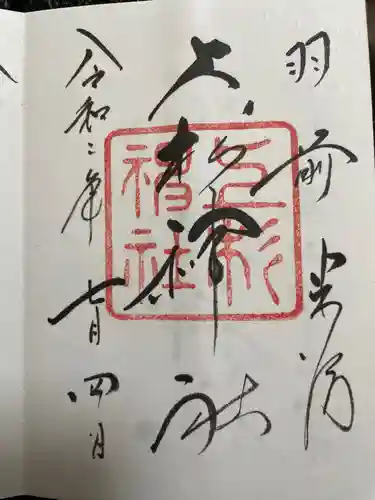 羽前米沢
上杉神社
令和二年七月四日
上杉
神社